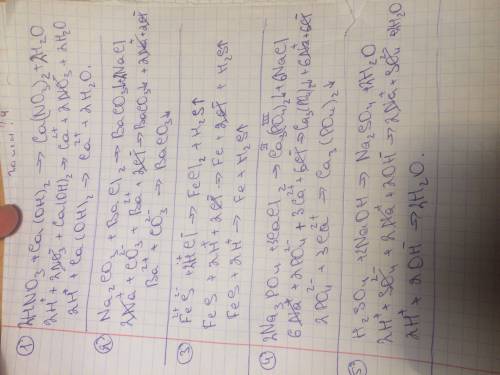 1) 2HNO₃ + Ca(OH)₂ → Ca(NO₃)₂ + 2H₂O
2H⁺ + 2NO₃⁻ + Ca(OH)₂ → Ca²⁺ + 2NO₃⁻ + 2H₂O
2H⁺ + Ca(OH)₂ → Ca²⁺ + 2H₂O.
2) Na₂CO₃ + BaCl₂ → BaCO₃↓ + 2NaCl
2Na⁺ + CO₃²⁻ + Ba²⁺ + 2Cl⁻ → BaCO₃↓ + 2Na⁺ + 2Cl⁻
Ba²⁺ + CO₃²⁻ → BaCO₃↓
3) Fe²⁺S²⁻ + 2HCl → FeCl₂ + H₂S↑
FeS + 2H⁺ + 2Cl⁻ → Fe²⁺ + 2Cl⁻ + H₂S↑
FeS + 2H⁺ → Fe²⁺ + H₂S↑
4) 2Na₃PO₄ + 3CaCl₂ → Ca₃(PO₄)₂↓ + 6NaCl
6Na⁺ + 2PO₄³⁻ + 3Ca²⁺ + 6Cl⁻ → Ca₃(PO₄)₂↓ + 6Na⁺ + 6Cl⁻
2PO₄³⁻ + 3Ca²⁺ → Ca₃(PO₄)₂↓
5) H₂SO₄ + 2NaOH → Na₂SO₄ + 2H₂O
2H⁺ + SO₄²⁻ + 2Na⁺ + 2OH⁻ → 2Na⁺ + SO₄²⁻ + 2H₂O
2H⁺ + 2OH⁻ → 2H₂O.